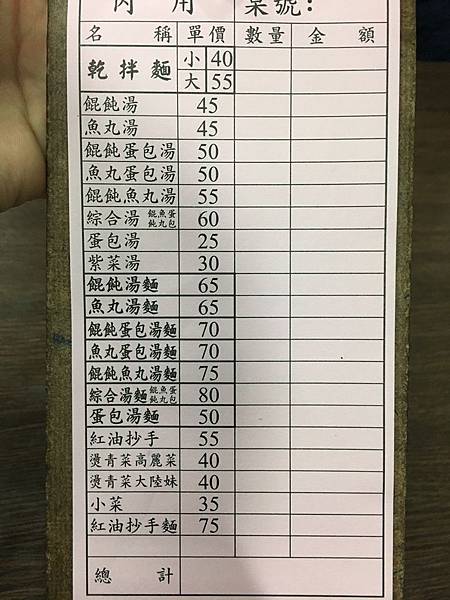 內用 桌號:
名稱 單價 數量 金額
乾拌麵 小 40
大 55
餛飩湯 45
魚丸湯 45
餛飩蛋包湯 50
魚丸蛋包湯 50
餛飩魚丸湯 55
綜合湯 餛魚蛋飩丸包 60
蛋包湯 25
紫菜湯 30
餛飩湯麵 65
魚丸湯麵 65
餛飩蛋包湯麵 70
魚丸蛋包湯麵 70
餛飩魚丸湯麵 75
綜合湯麵 餛魚蛋飩丸包 80
蛋包湯麵 50
紅油抄手 55
燙青菜高麗菜 40
燙青菜大陸妹 40
小菜 35
紅油抄手麵 75
總計